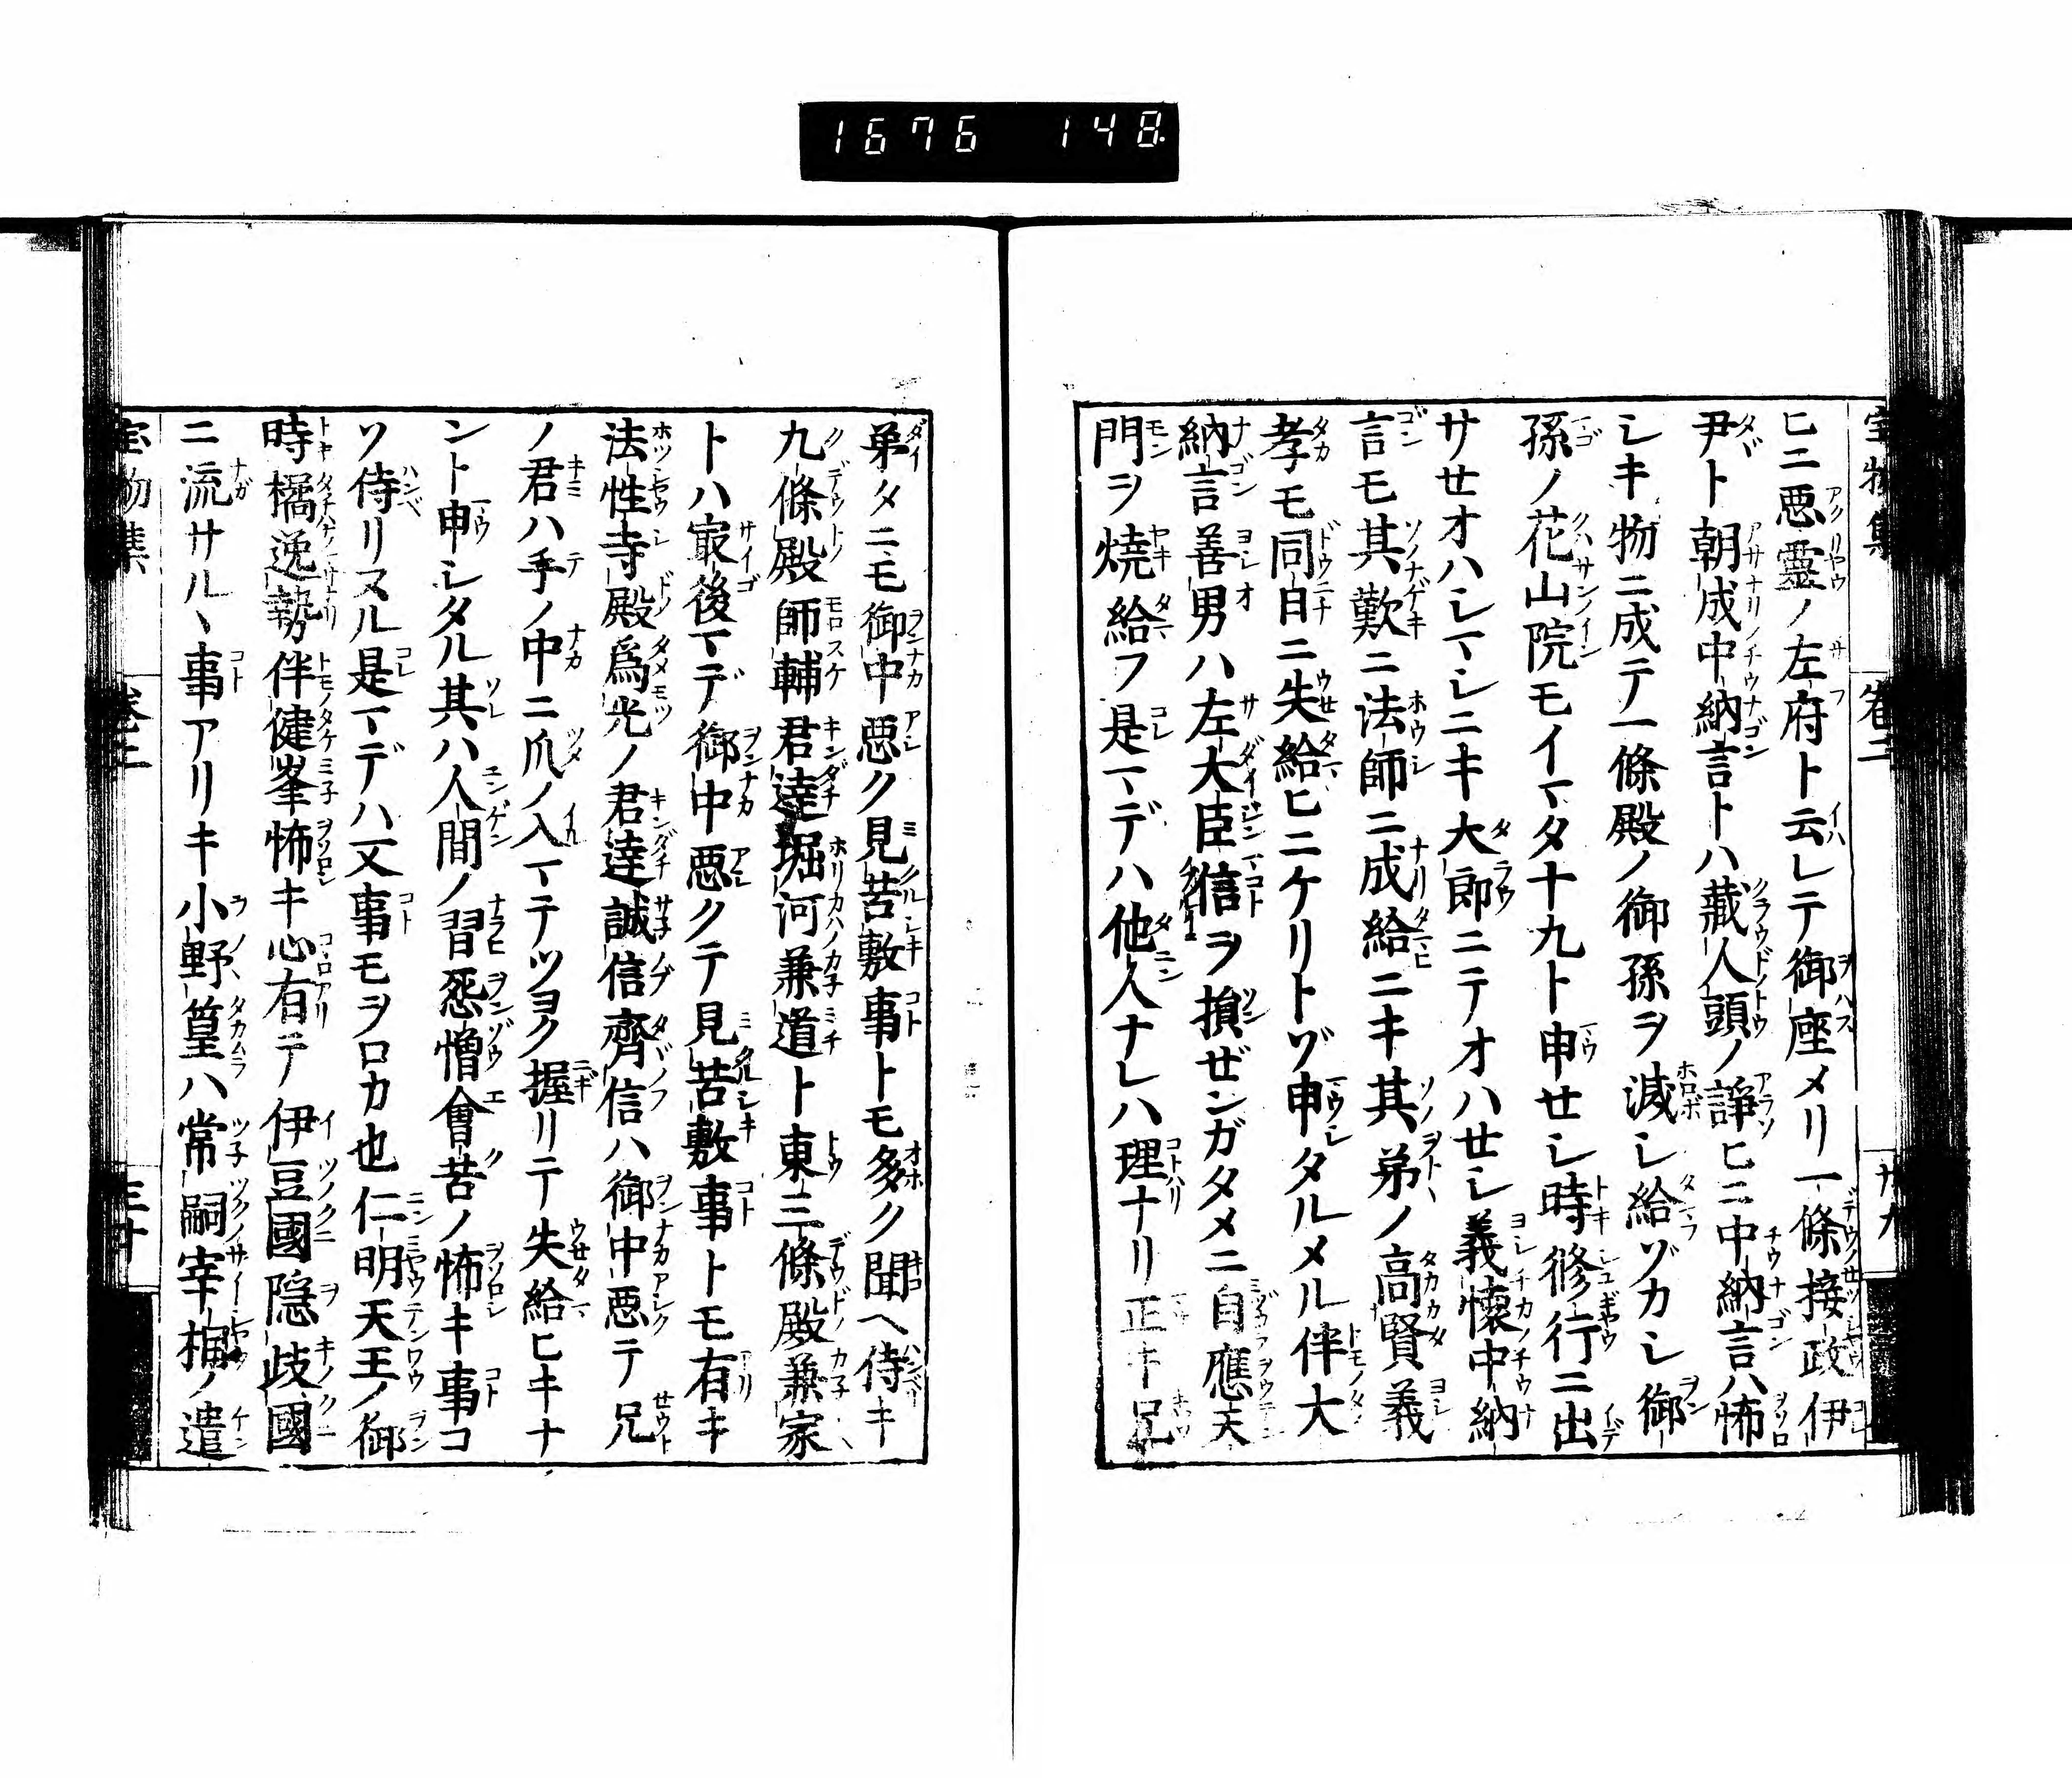 1676 148
宝物集 卷二 廿九
ヒニ悪霊ノ左府ト云レテ御座メリ一條接政伊
尹ト朝成中納言トハ藏人頭ノ諍ヒニ中納言ハ怖
シキ物ニ成テ一條殿ノ御孫ヲ滅シ給ゾカシ御
孫ノ花山院モイマタ十九ト申せシ時修行ニ出
サせオハシマシニキ大郎ニテオハせシ義懷中納
言モ其歎ニ法師ニ成給ニキ其弟ノ高賢義
孝モ同日ニ失給ヒニケリトヅ申タルメル伴大
納言善男ハ左大臣信ヲ損ぜンガタメニ自應天
門ヲ燒給フ是マデハ他人ナレハ理ナリ正キ兄
弟タニモ御中悪ク見苦敷事トモ多ク聞ヘ侍キ
九條殿師輔君達堀河兼道ト東三條殿兼家
トハ寂後マデ御中悪クテ見苦敷事トモ有キ
法性寺殿爲光ノ君達誠信齊信ハ御中悪テ兄
ノ君ハ手ノ中ニ爪ノ入マテツヨク握リテ失給ヒキナ
ント申シタル其ハ人間ノ習怨憎會苦ノ怖キ事コ
ソ侍リヌル是マデハ又事モヲロカ也仁明天王ノ御
時橘逸勢伴健峯怖キ心有テ伊豆國隠歧國
ニ流サルヽ事アリキ小野篁ハ常嗣宰相ノ遣
宝物集 卷二 三十